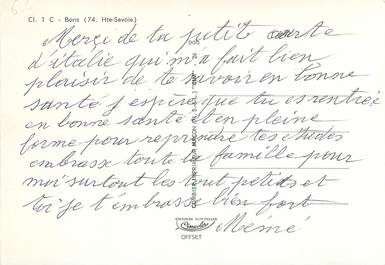 Cl. 1 C - Bons (74. Hte-Savoie)
Merçi de ta petite carte
d'italie qui m'a fait bien
plaisir de te savoir en bonne
santé j'espère que tu es rentrée
en bonne santé et en pleine
forme pour reprendre tes études
embrasse toute la famille pour
moi surtout les tout petits et
toi je t'embrasse bien fort
Mémé
COMBIER IMPRIMEUR MACON
OFFSET